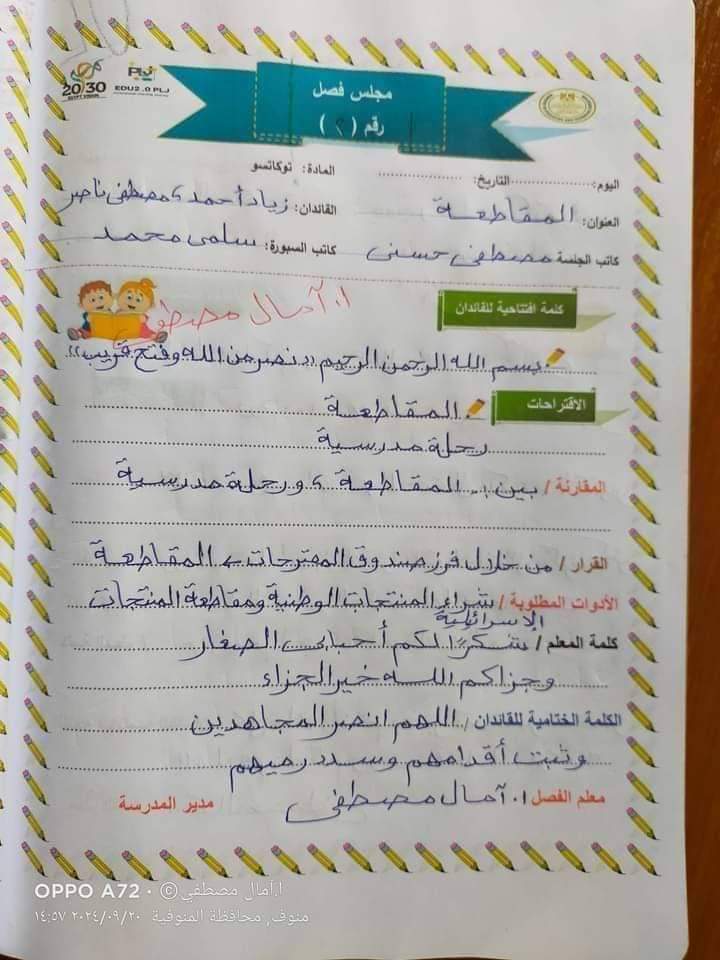 2030
EGYPT VISION
EDU2.0 PLJ
مجلس فصل
رقم (٢)
اليوم: التاريخ: المادة: توكاتسو
العنوان: المقاطعة القائدان: زياد أحمد، مصطفى ناصر
كاتب الجلسة مصطفى حسنى كاتب السبورة: سلمى محمد
أ. آمال مصطفى
كلمة افتتاحية للقائدان
بسم الله الرحمن الرحيم ((نصر من الله وفتح قريب))
الاقتراحات
المقاطعة
رحلة مدرسية
المقارنة / بين :. المقاطعة، ورحلة مدرسية
القرار / من خلال فرز صندوق المقترحات ← المقاطعة
الأدوات المطلوبة / شراء المنتجات الوطنية ومقاطعة المنتجات
الإسرائيلية
كلمة المعلم / شكرًا لكم أحبابى الصغار
وجزاكم الله خير الجزاء
الكلمة الختامية للقائدان / اللهم انصر المجاهدين
وثبت أقدامهم وسدد رميهم
معلم الفصل أ. آمال مصطفى مدير المدرسة
OPPO A72 · © ا.آمال مصطفي
منوف, محافظة المنوفية ٢٠٢٤/٠٩/٢٠ ١٤:٥٧